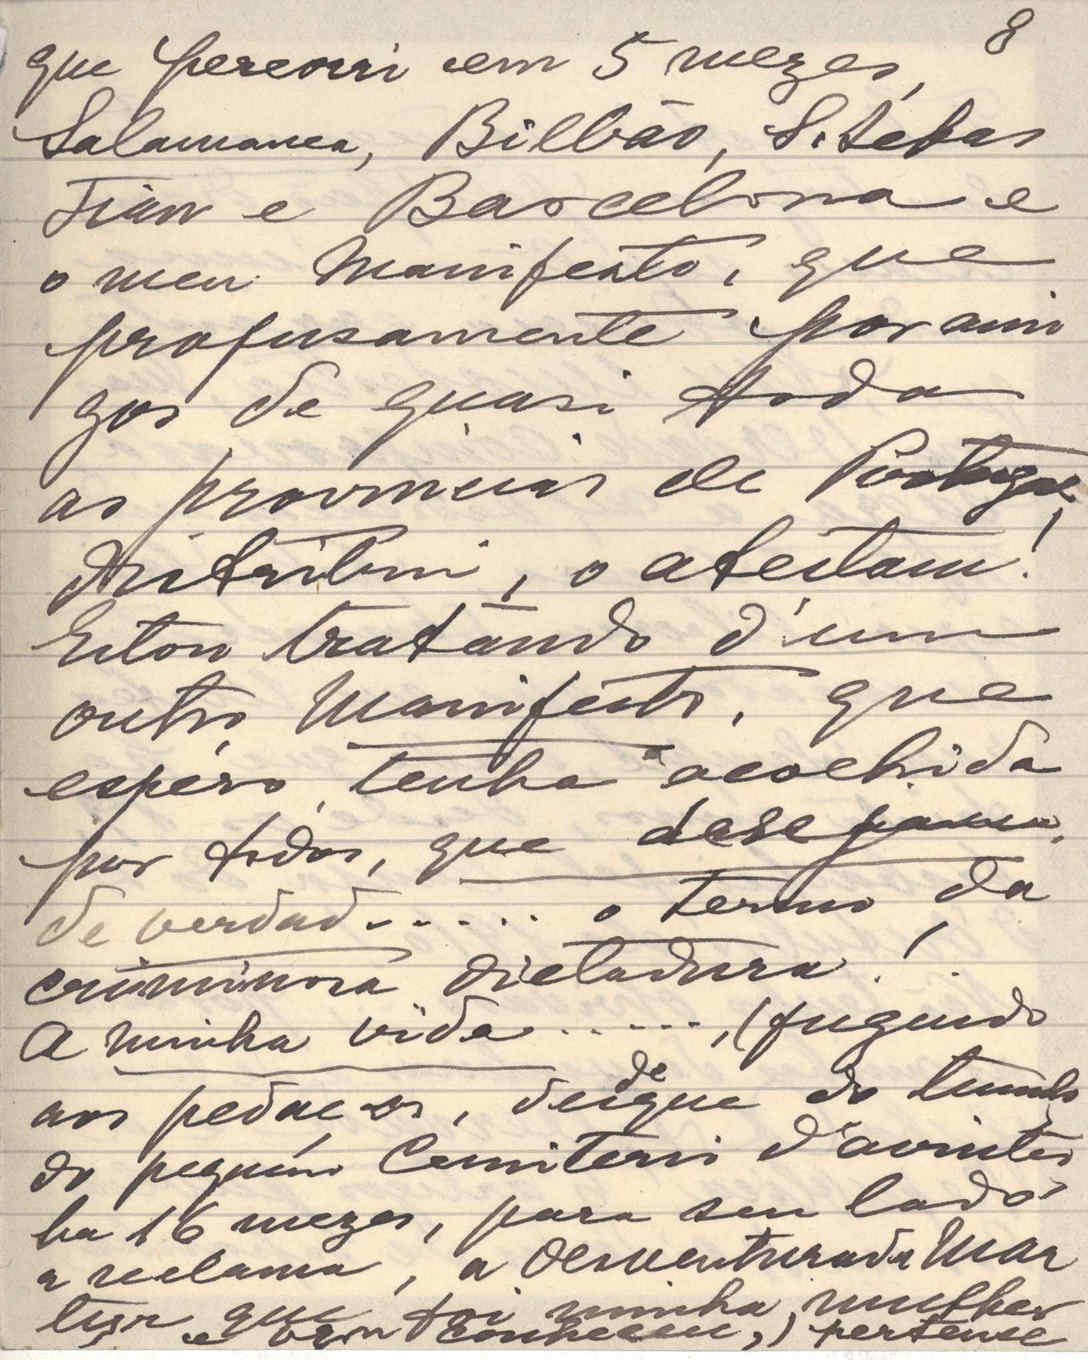 8
que percorri em 5 mezes,
Salamanca, Bilbáo, S. Sebas
tian e Barcelona e
o meu Manifesto, que
profusamente por ami
gos de quasi toda
as provincias de Portugal,
distribui, o atestam!
Estou tratando d'um
outro Manifesto, que
espéro, tenha acolhida
por todos, que desejam,
de verdad...... o termo da
criminosa dictadura!.
A minha vida......, (fugindo
aos pedaços, desde que do tumulo
do pequeno Cemiterio d'avintes
ha 16 mezes, para seu lado
a reclama, a desventurada Mar
tyr que foi minha mulher
e bem conheceu,) pertence